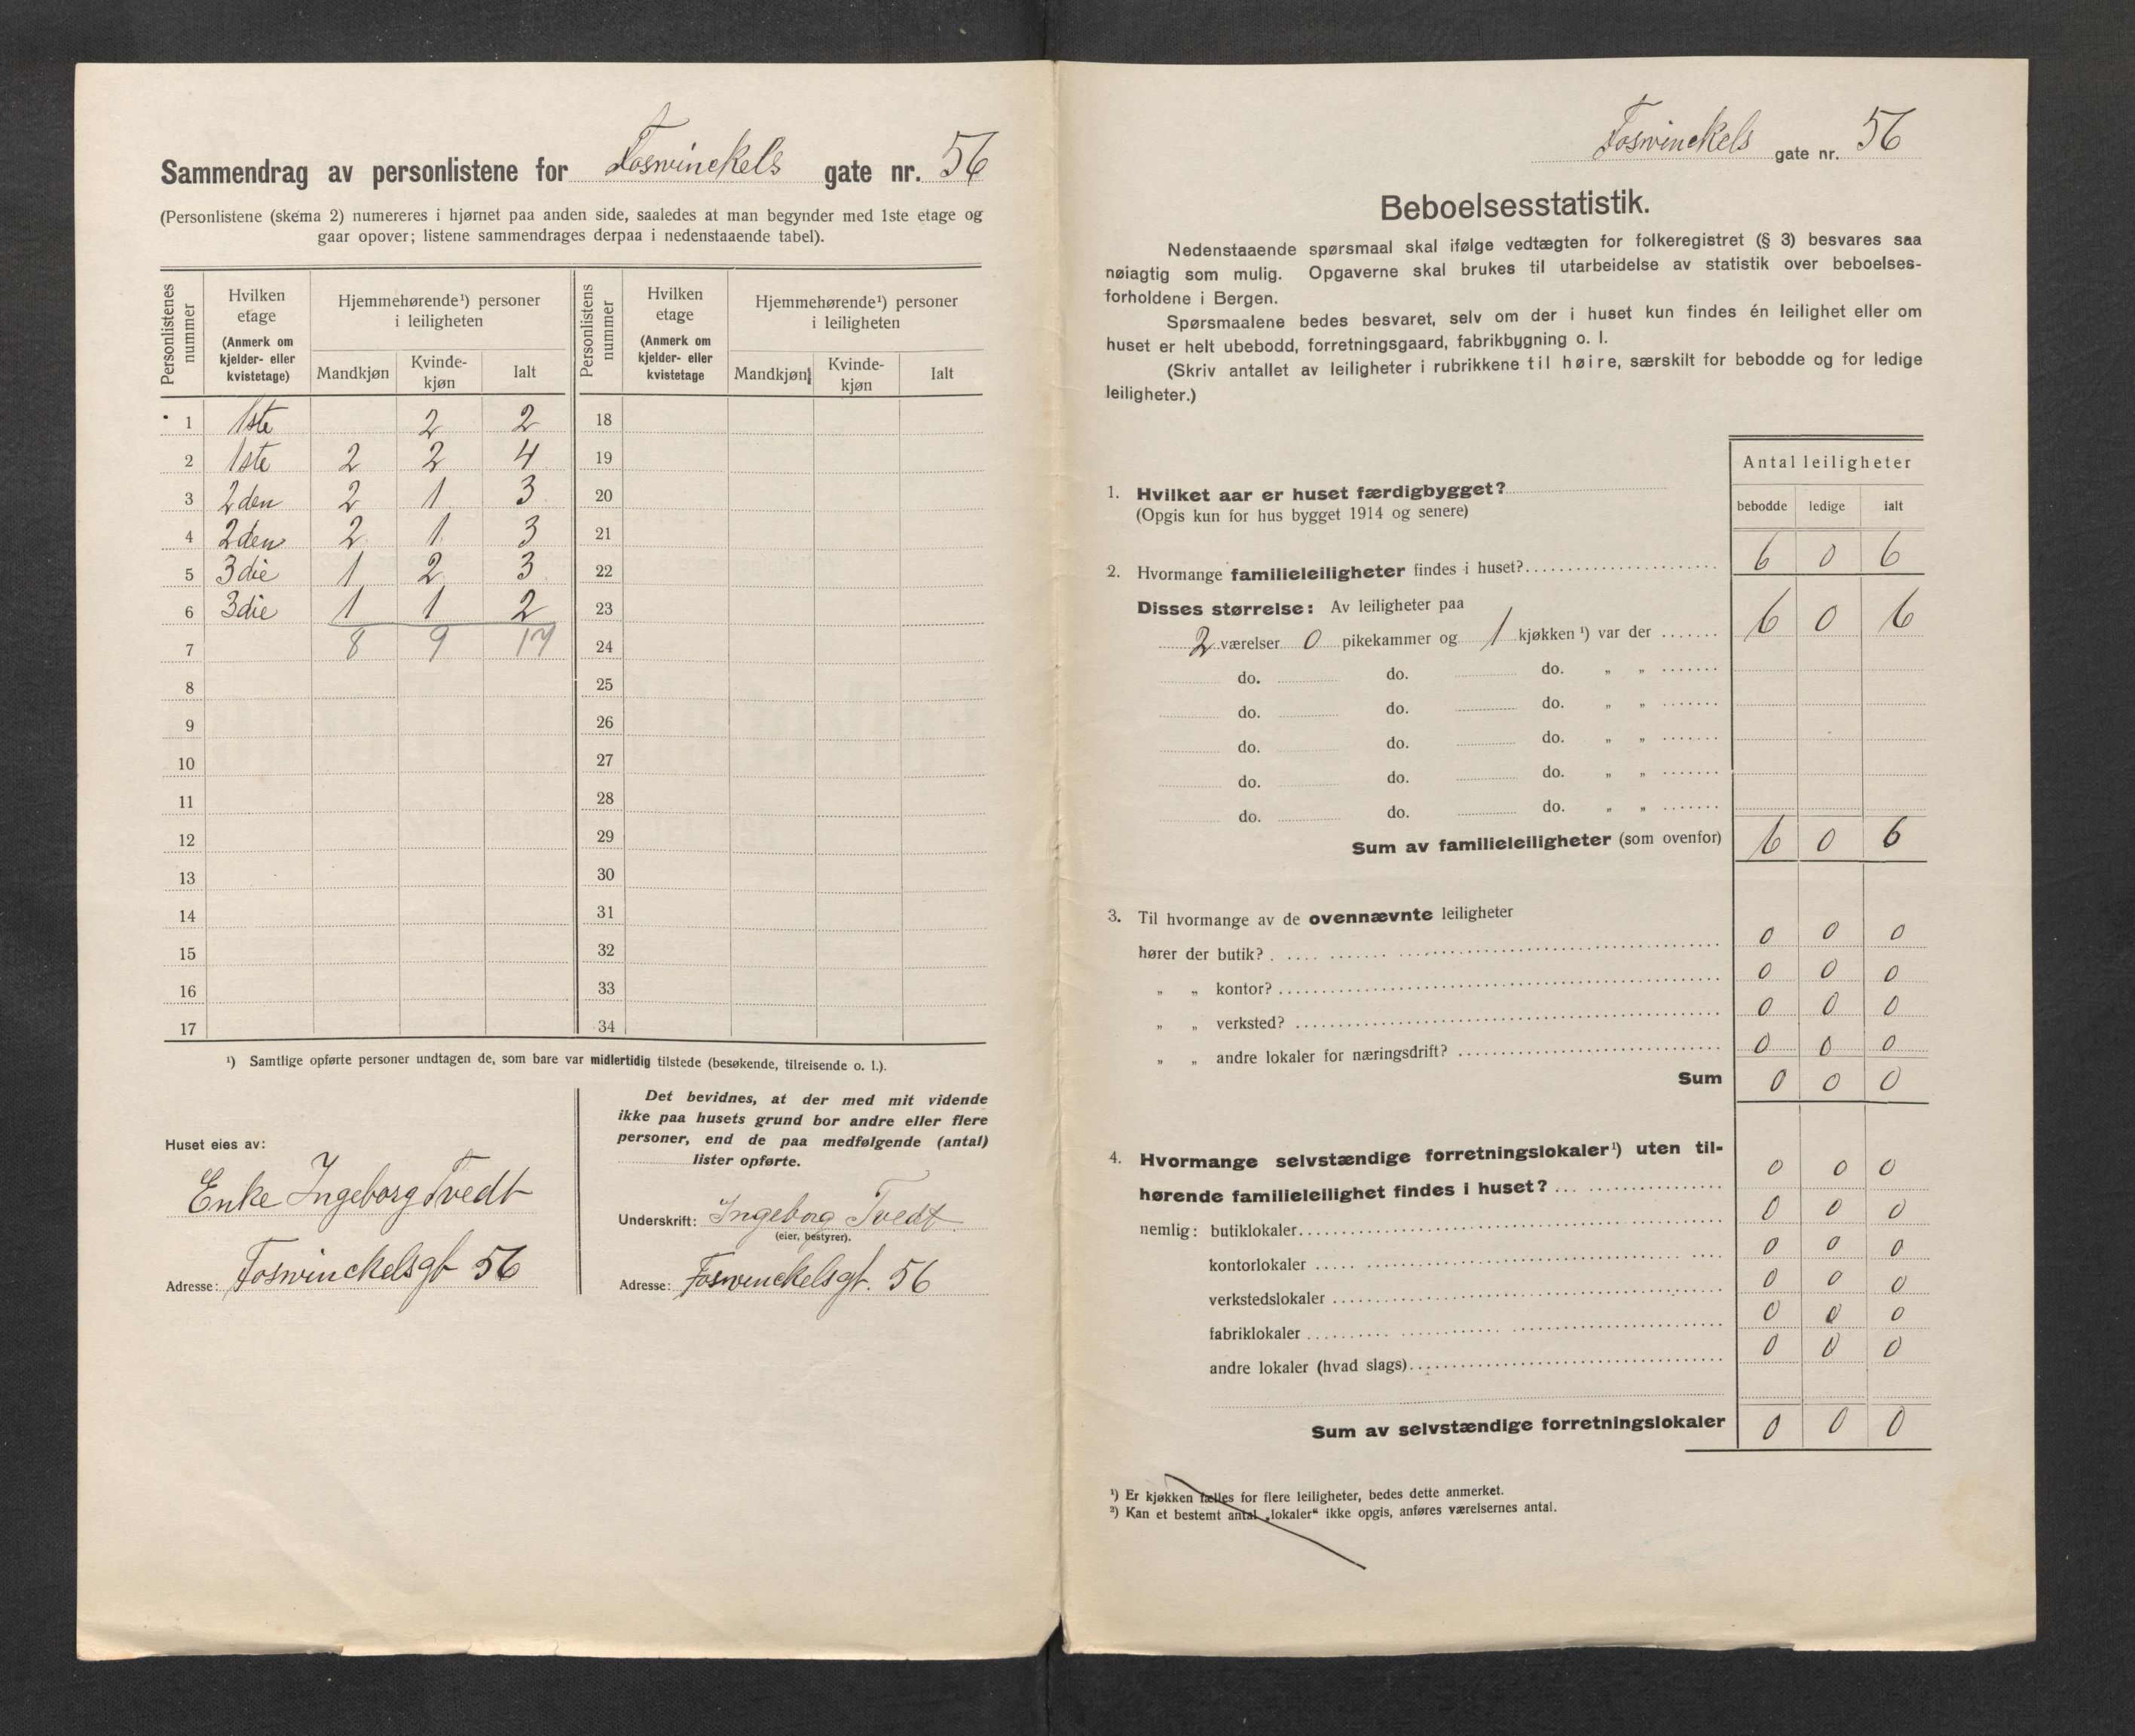 Sammendrag av personlistene for Foswinckels gate nr. 56
(Personlistene (skema 2) numereres i hjørnet paa anden side, saaledes at man begynder med 1ste etage og
gaar opover; listene sammendrages derpaa i nedenstaaende tabel).
Personlistenes nummer
Hvilken etage (Anmerk om kjelder- eller kvistetage)
Hjemmehørende¹) personer i leiligheten
Mandkjøn Kvinde-kjøn Ialt
Personlistens nummer
Hvilken etage (Anmerk om kjelder- eller kvistetage
Hjemmehørende¹) personer i leiligheten
Mandkjøn Kvinde-kjøn Ialt
1 1ste 2 2 18
2 1ste 2 2 4 19
3 2den 2 1 3 20
4 2den 2 1 3 21
5 3die 1 2 3 22
6 3die 1 1 2 23
7 8 9 17 24
8 25
9 26
10 27
11 28
12 29
13 30
14 31
15 32
16 33
17 34
¹) Samtlige opførte personer undtagen de, som bare var midlertidig tilstede (besøkende, tilreisende o. l.).
Huset eies av:
Enke Ingeborg Tvedt
Adresse: Foswinckelsgt 56
Det bevidnes, at der med mit vidende
ikke paa husets grund bor andre eller flere
personer, end de paa medfølgende (antal)
lister opførte.
Underskrift: Ingeborg Tvedt
(eier, bestyrer).
Adresse: Foswinckelsgt. 56
Foswinckels gate nr. 56
Beboelsesstatistik.
Nedenstaaende spørsmaal skal ifølge vedtægten for folkeregistret (§ 3) besvares saa
nøiagtig som mulig. Opgaverne skal brukes til utarbeidelse av statistik over beboelses-
forholdene i Bergen.
Spørsmaalene bedes besvaret, selv om der i huset kun findes én leilighet eller om
huset er helt ubebodd, forretningsgaard, fabrikbygning o. l.
(Skriv antallet av leiligheter i rubrikkene til høire, særskilt for bebodde og for ledige
leiligheter.)
Antal leiligheter
bebodde ledige ialt
1. Hvilket aar er huset færdigbygget?
(Opgis kun for hus bygget 1914 og senere)
2. Hvormange familieleiligheter findes i huset? 6 0 6
Disses størrelse: Av leiligheter paa
2 værelser 0 pikekammer og 1 kjøkken ¹) var der 6 0 6
do. do. do. „ „
do. do. do. „ „
do. do. do. „ „
do. do. do. „ „
do. do. do. „ „
Sum av familieleiligheter (som ovenfor) 6 0 6
3. Til hvormange av de ovennævnte leiligheter
hører der butik? 0 0 0
„ „ kontor? 0 0 0
„ „ verksted? 0 0 0
„ „ andre lokaler for næringsdrift? 0 0 0
Sum 0 0 0
4. Hvormange selvstændige forretningslokaler¹) uten til-
hørende familieleilighet findes i huset? 0 0 0
nemlig: butiklokaler 0 0 0
kontorlokaler 0 0 0
verkstedslokaler 0 0 0
fabriklokaler 0 0 0
andre lokaler (hvad slags) 0 0 0
Sum av selvstændige forretningslokaler 0 0 0
¹) Er kjøkken fælles for flere leiligheter, bedes dette anmerket.
²) Kan et bestemt antal „lokaler“ ikke opgis, anføres værelsernes antal.